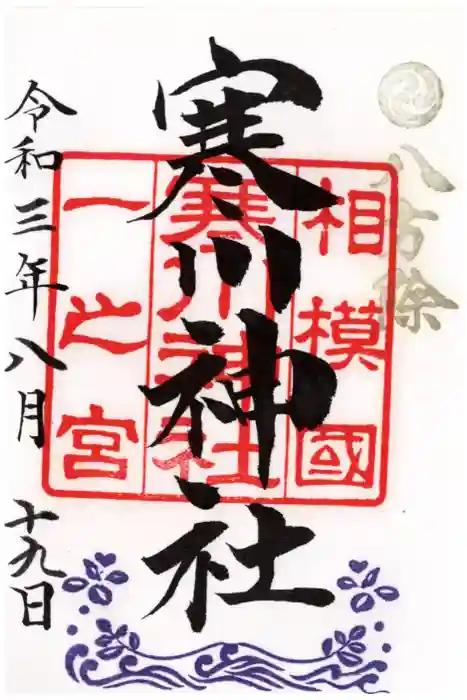 八方除
相模國
寒川神社
一之宮
寒川神社
令和三年八月十九日